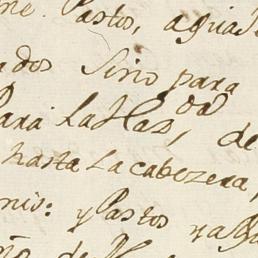 ne. Pastos, aguad
ados sino para
Para La Haz, da de
hasta La cabezera,
nio: y Pastos ya